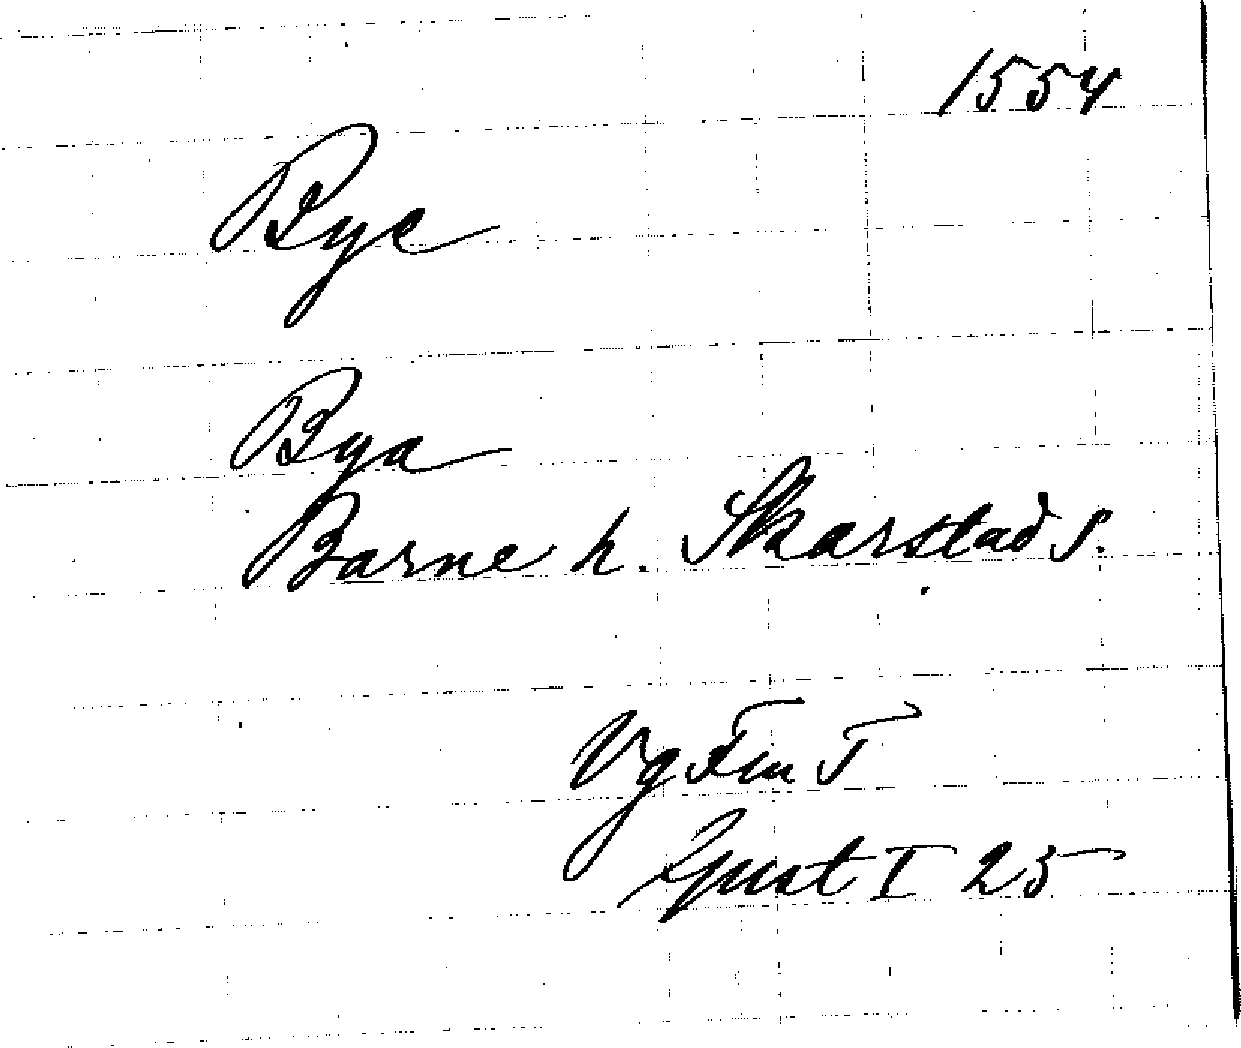 1554
Bye
Bya
Barne h. Skarstad s.
Vg Fin T
Gust I 25